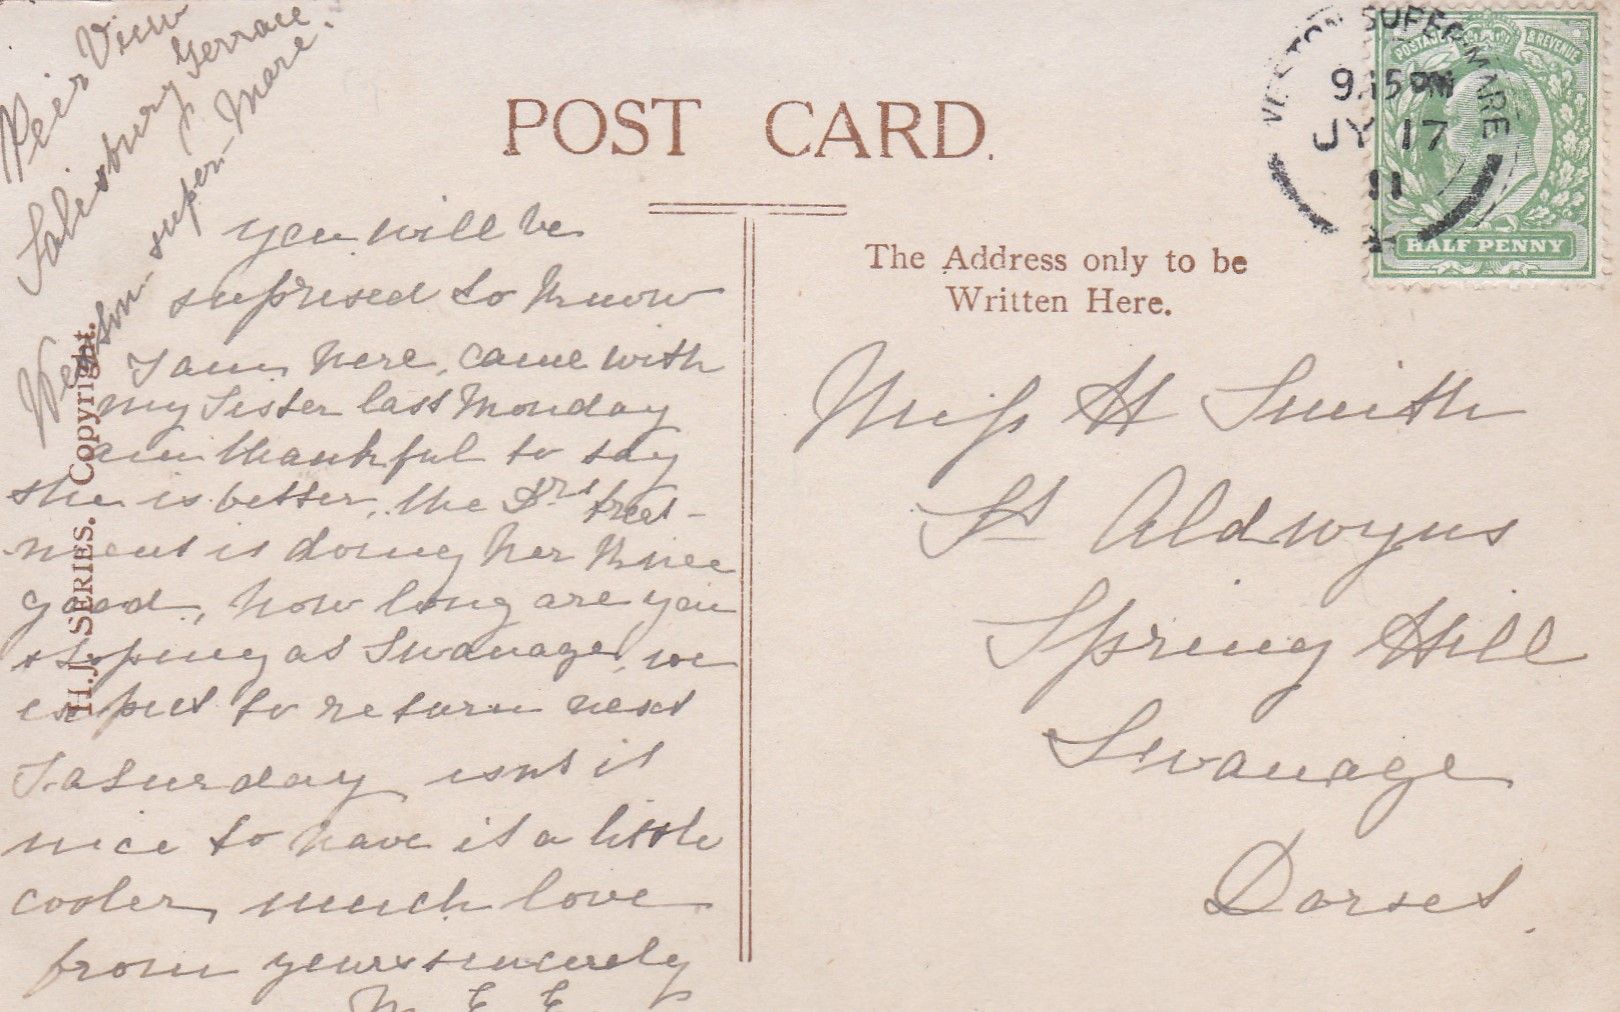 Peir View
Salisbury Terrace
Weston-super-Mare.
POST CARD.
you will be
suprised to know
I am here, came with
my Sister last Monday
am thankful to say
she is better, the Drs treat-
ment is doing her knee
good, how long are you
stoping at Swanage, we
expect to return next
Saturday isnt it
nice to have it a little
cooler, much love
from yours sincerely
M E E
H.J. SERIES. Copyright.
The Address only to be
Written Here.
Miss H Smith
St Aldwyns
Spring Hill
Swanage
Dorset.
WESTON SUPER MARE
9.15 PM
JY 17
11
POSTAGE & REVENUE
HALF PENNY